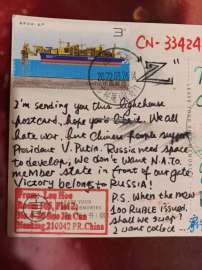 3
CN-33424
"Z"
I'm sending you this lighthouse
postcard, hope you'll like. We all
hate war, but Chinese people support
President V. Putin. Russia need space
to develop, we don't want N.A.T.O
member state in front of our gate.
Victory belongs to RUSSIA!
From: Leo Hee
Nanking 210047 P.R. China
P.S. When the new
100 RUBLE issued,
shall we swap?
I want collect ...